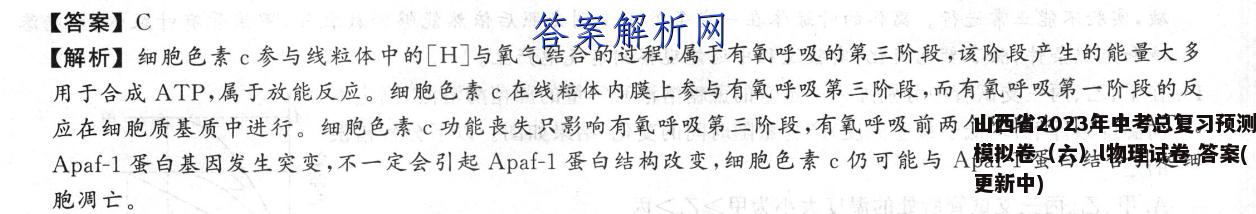 【答案】C
答案解析网
【解析】细胞色素c参与线粒体中的[H]与氧气结合的过程,属于有氧呼吸的第三阶段,该阶段产生的能量大多
用于合成 ATP,属于放能反应。细胞色素c在线粒体内膜上参与有氧呼吸第三阶段,而有氧呼吸第一阶段的反
应在细胞质基质中进行。细胞色素c功能丧失只影响有氧呼吸第三阶段,有氧呼吸前两个
山西省2023年中考总复习预测
模拟卷（六）l物理试卷 答案(
更新中)
Apaf-1 蛋白基因发生突变,不一定会引起 Apaf-1 蛋白结构改变,细胞色素c仍可能与
胞凋亡。